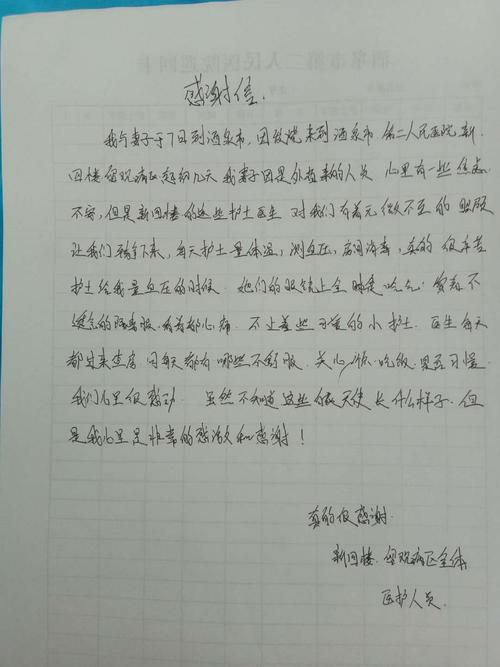 感谢信.
我与妻子于7日到酒泉市,因发烧来到酒泉市第二人民医院新
四楼留观病区起初几天我妻子因是外地来的人员 心里有一些焦虑
不安,但是新四楼的这些护士医生 对我们有着无微不至的照顾
让我们 下来,每天护士量体温,测血压,房间消毒,真的很辛苦
护士给我量血压的时候.她们的眼镜上全 是哈气!穿着不
透气的隔离服.看着都心痛.不止是这些 的小护士.医生每天
都过来查房 问每天都有哪些不舒服.关心 吃饭.是否习惯
我们心里很感动.虽然不知道这些 天使 长什么样子.但
是我心里是非常的感激和感谢!
真的很感谢.
新四楼.留观病区全体
医护人员.